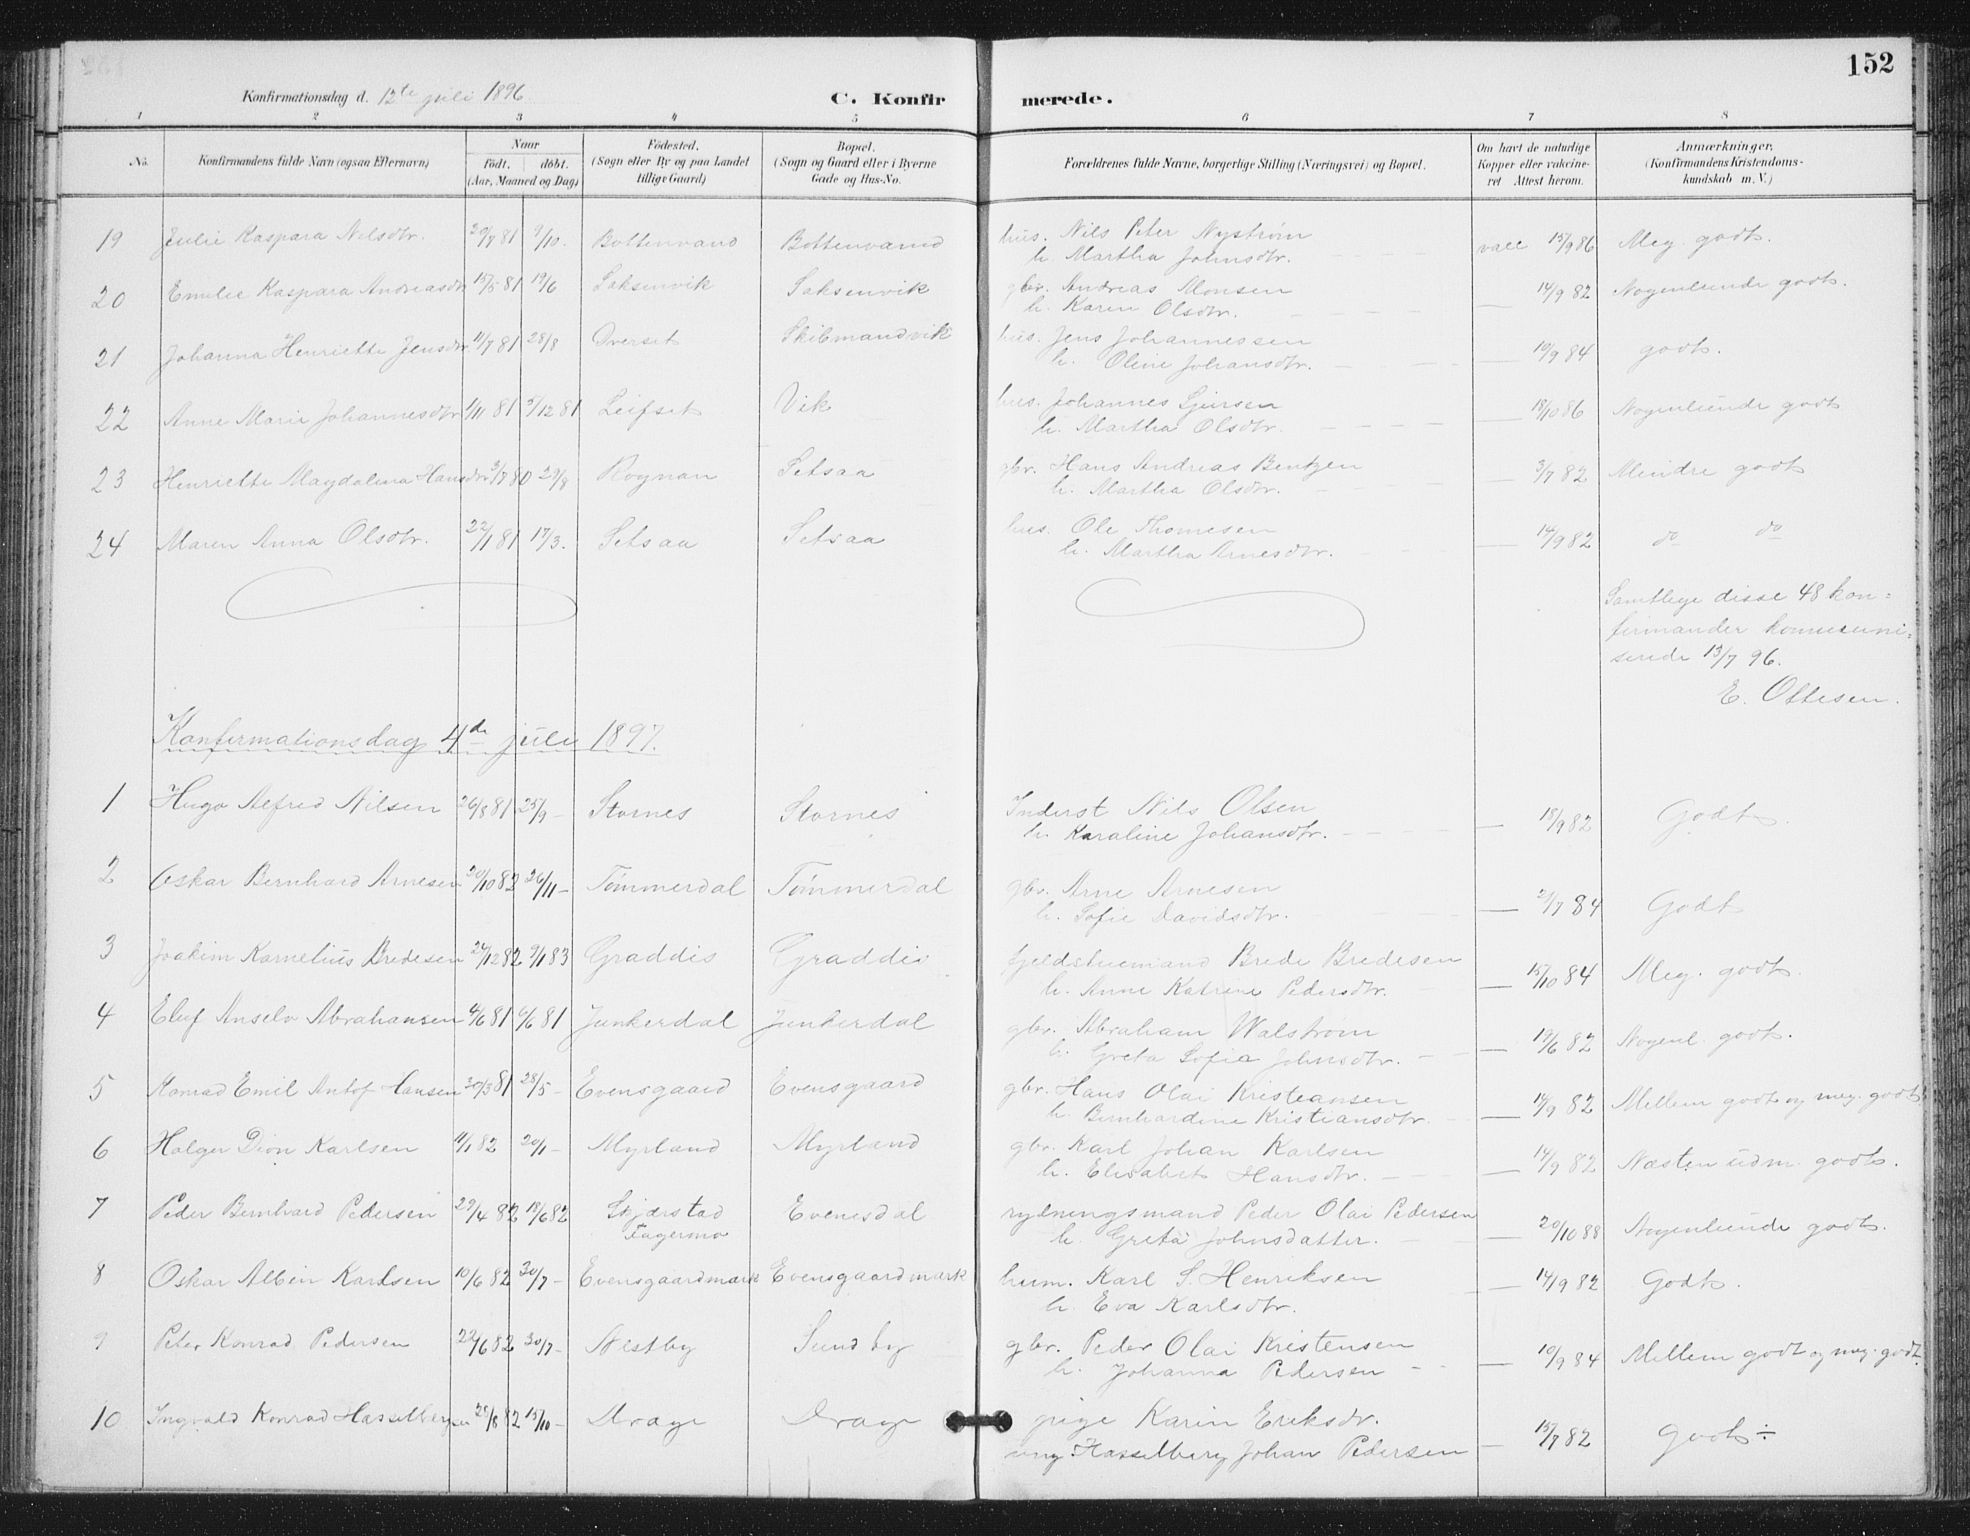 152
Konfirmationsdag d. 12te juli 1896
C. Konfir merede.
1 2 3 4 5 6 7 8
No. Konfirmandens fulde Navn (ogsaa Efternavn) Naar Födt. döbt. (Aar, Maaned og Dag) Födested. (Sogn eller By og paa Landet tillige Gaard) Bopæl. (Sogn og Gaard eller i Byerne Gade og Hus-No. Forældrenes fulde Navne, borgerlige Stilling (Næringsvei) og Bopæl. Om havt de naturlige Kopper eller vakcineret Attest herom. Anmerkninger. (Konfirmandens Kristendomskundskab m. V.)
19 Julie Kaspara Nilsdtr. 29/8 81 9/10. Bottenvand Bottenvand hus. Nils Peter Nystrøm vacc 15/9 86 Meg. godt.
h. Martha Johnsdtr.
20 Emilie Kaspara Andreasdtr 15/5 81 19/6 Saksenvik Saksenvik gbr. Andreas Monsen — 14/9 82 Nogenlunde godt.
h. Karen Olsdtr.
21 Johanna Henriette Jensdtr 11/7 81 28/8 Overset Skibmandvik hus. Jens Johannessen — 19/9 84 godt.
h. Oline Johansdtr.
22 Anne Marie Johannesdtr 1/11 81 5/12 81 Leifset Vik hus. Johannes Sjursen — 18/10 86 Nogenlunde godt
h. Martha Olsdtr.
23 Henriette Magdalena Hansdtr 3/7 80 29/8 Rognan Setsaa gbr. Hans Andreas Bentzen — 3/7 82 Mindre godt
h. Martha Olsdtr.
24 Maren Anna Olsdtr. 22/1 81 17/3. Setsaa Setsaa hus. Ole Thomesen — 14/9 82 do do
h. Martha Arnesdtr.
Samtlige disse 48 kon=
firmander kommuni=
serede 13/7 96.
E. Ottesen.
Konfirmationsdag 4de juli 1897.
1 Hugo Alfred Nilsen 26/8 81 25/9 - Stornes Stornes Inderst Nils Olsen — 18/9 82 Godt.
h. Karaline Johansdtr.
2 Oskar Bernhard Arnesen 20/10 82 26/11 - Tömmerdal Tömmerdal gbr. Arne Arnesen — 2/7 84 Godt
h. Sofie Davidsdtr.
3 Joakim Kornelius Bredesen 24/12 82 9/1 83 Graddis Graddis fjeldstuemand Brede Bredesen — 15/10 84 Meg. godt.
h. Anne Katrine Pedersdtr.
4 Eluf Anselv Abrahamsen 4/6 81 6/6 81 Junkerdal Junkerdal gbr. Abraham Walstrøm — 19/6 82 Nogenl. godt.
h. Greta Sofia Johnsdtr.
5 Konrad Emil Antof Hansen 20/3 81 28/5 - Evensgaard Evensgaard gbr. Hans Olai Kristiansen — 14/9 82 Mellem godt og meg. godt
h. Bernhardine Kristiansdtr.
6 Holger Dion Karlsen 11/1 82 20/1 - Myrland Myrland gbr. Karl Johan Karlsen — 14/9 82 Næsten udm. godt.
h. Elisabet Hansdtr.
7 Peder Bernhard Pedersen 29/4 82 18/6 82 Skjærstad Evenesdal rydningsmand Peder Olai Pedersen — 20/10 88 Nogenlunde godt.
Fagermo h. Greta Johnsdatter.
8 Oskar Albin Karlsen 10/6 82 30/7 - Evensgaardmark Evensgaardmark husm. Karl S. Henriksen — 14/9 82 Godt.
h. Eva Karlsdtr.
9 Peter Konrad Pedersen 22/6 82 30/7 - Nestby Sundby gbr. Peder Olai Kristensen — 19/9 84 Mellem godt og meg. godt.
h. Johanna Pedersen
10 Ingvald Konrad Hasselbergsen 28/8 82 15/10 - Drage Drage pige Karin Eriksdtr. — 15/7 82 Godt ÷
ung. Hasselberg Johan Pedersen